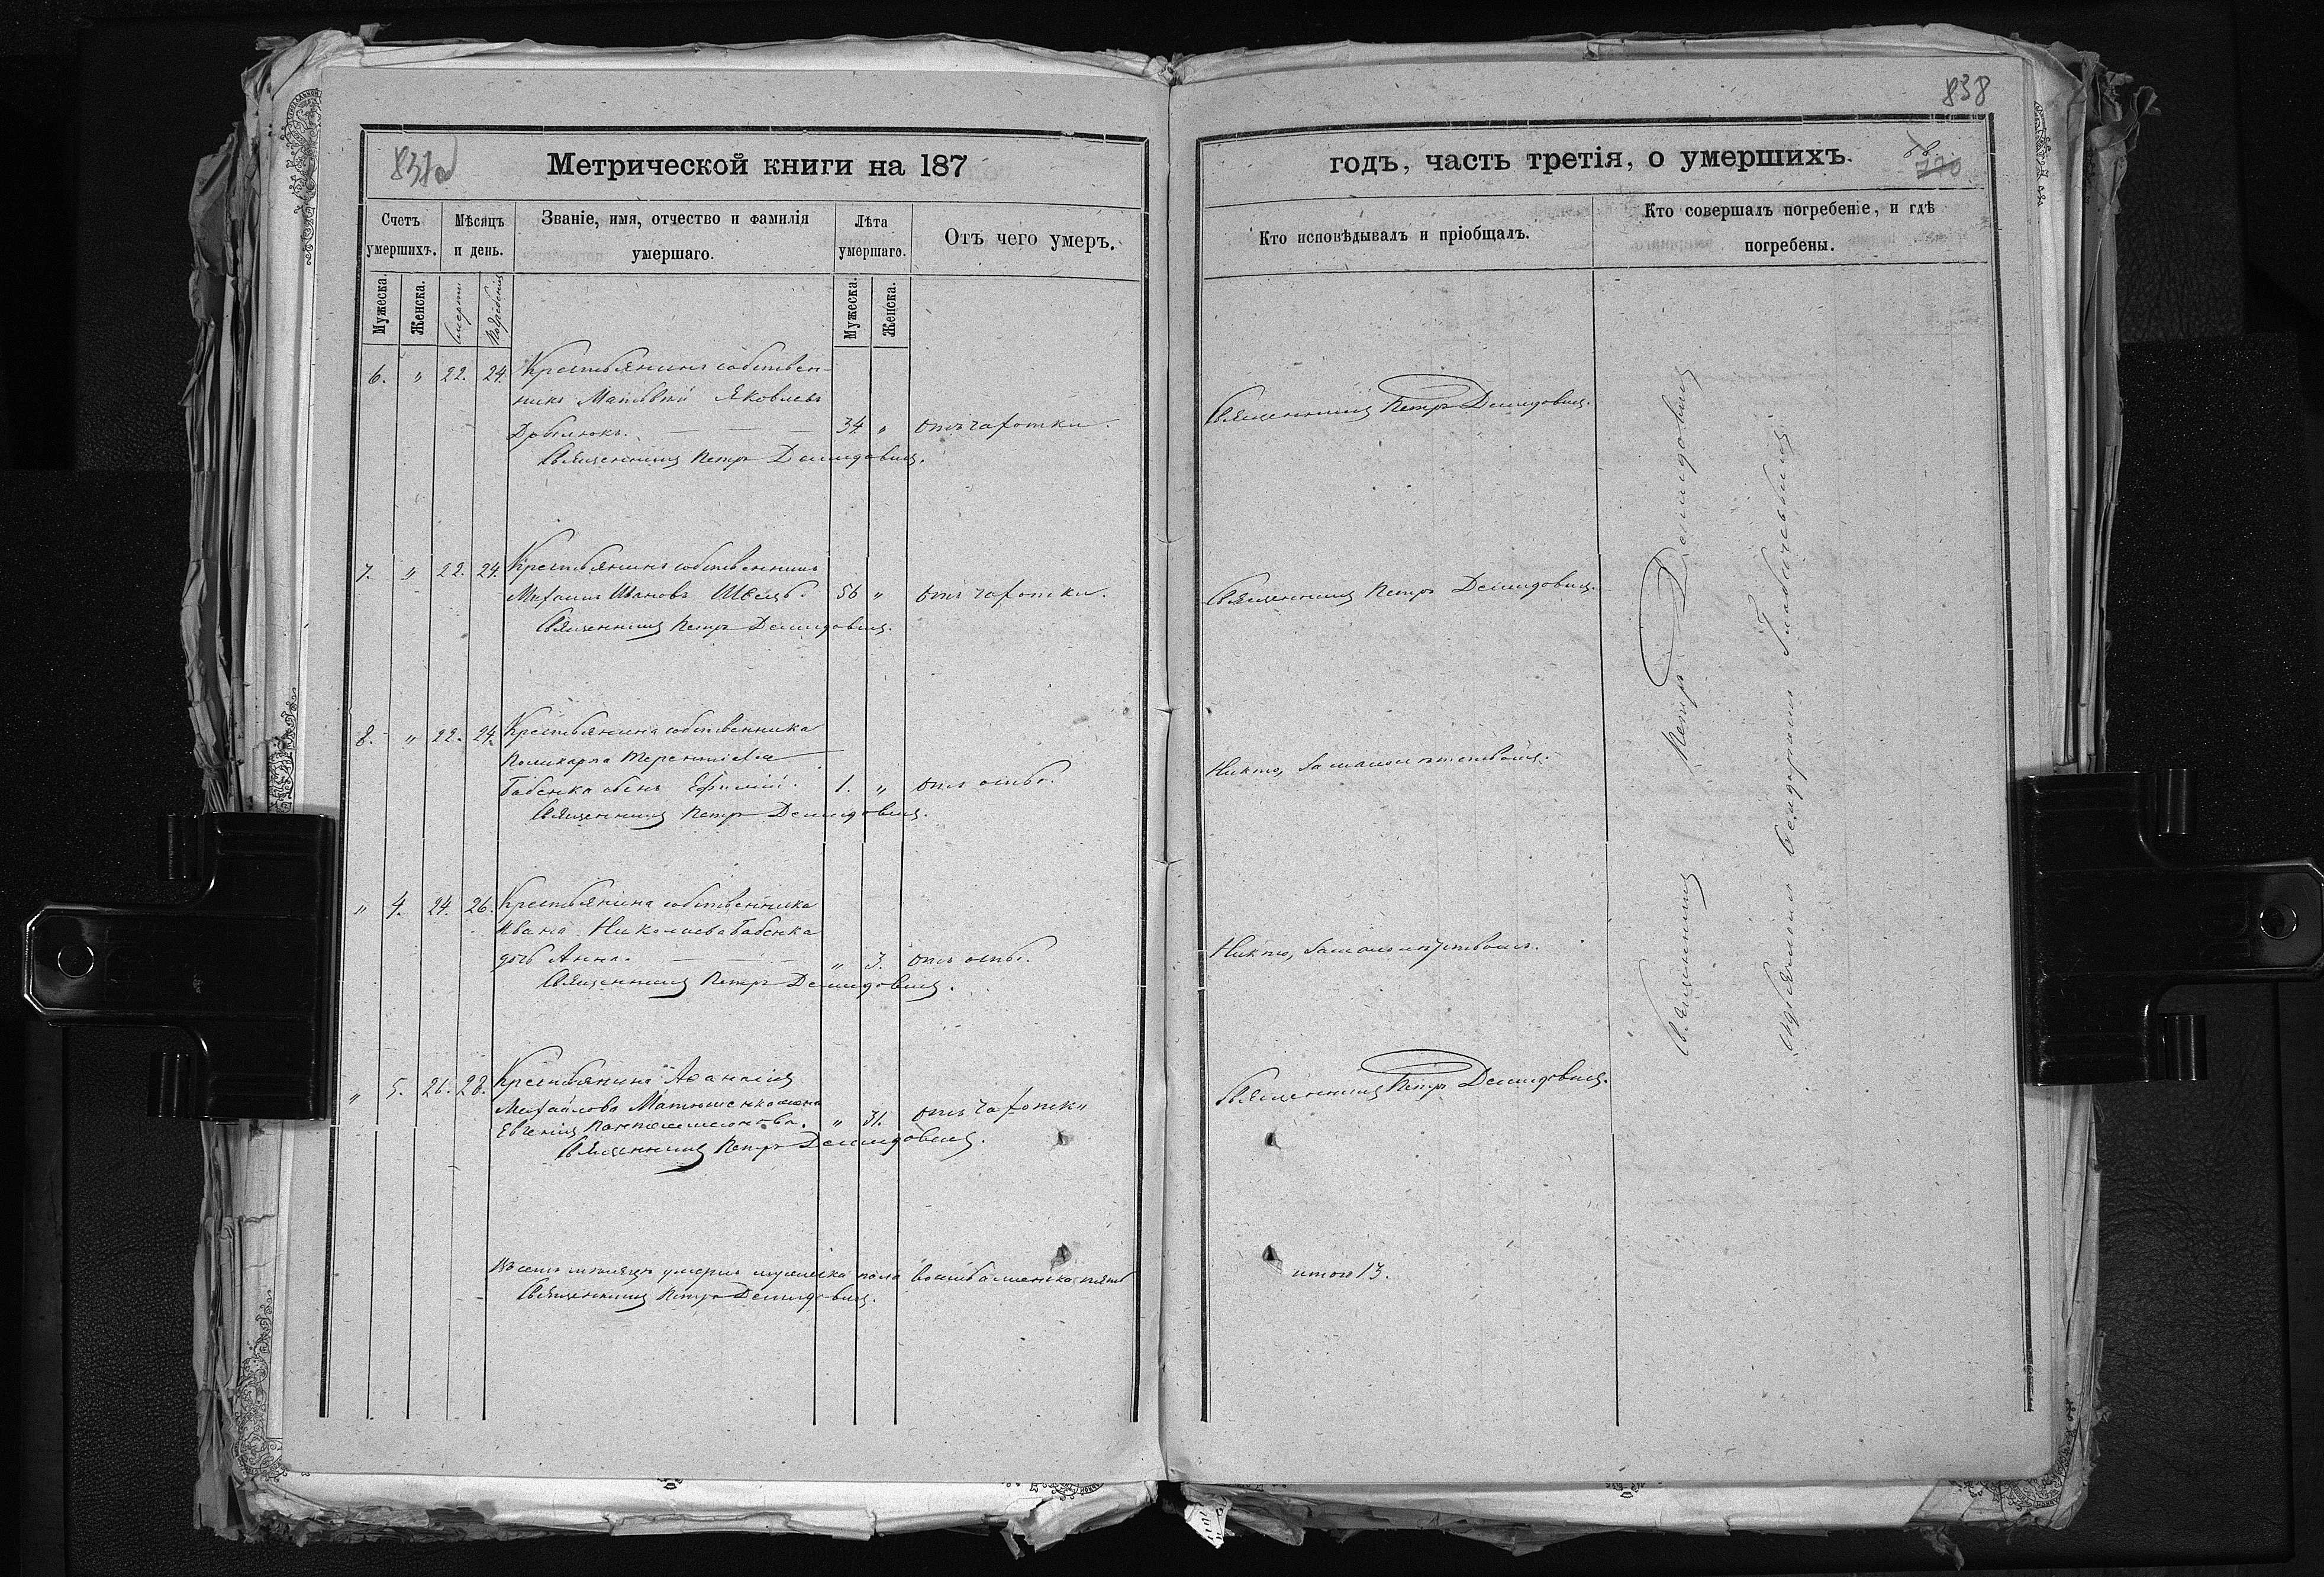 838
837
Метрической книги на 187
годъ, часть третія, о умершихъ.
770
Счетъ умершихъ.
Мѣсяцъ и день.
Званіе, имя, отчество и фамилія умершаго.
Лѣта умершаго.
Отъ чего умеръ.
Кто исповѣдывалъ и пріобщалъ.
Кто совершалъ погребеніе, и гдѣ погребены.
Мужеска.
Женска.
Смерти
Погребенія
Мужеска.
Женска.
6. " 22. 24. Крестьянинъ собствен-
никъ Матвѣй Яковлевъ
34 " отъ чахотки.
Священникъ Петръ Демидовичъ.
Священникъ Петръ Демидовичъ.
7. " 22. 24. Крестьянинъ собственникъ
Михаилъ Ивановъ Швецъ. 56 " отъ чахотки.
Священникъ Петръ Демидовичъ.
Священникъ Петръ Демидовичъ.
8. " 22. 24. Крестьянина собственника
Поликарпа Терентіева
Бабенка сынъ Ефимій. 1. " отъ оспы.
Священникъ Петръ Демидовичъ.
Никто, за малолѣтствомъ.
" 4. 24. 26. Крестьянина собственника
Ивана Николаева Бабенка
дочь Анна. " 3. отъ оспы.
Священникъ Петръ Демидовичъ.
Никто, за малолѣтствомъ.
" 5. 26. 28. Крестьянина Аѳанасія
Михайлова Матюшенка жена
Евгенія Пантелеимонова. " 31. отъ чахотки
Священникъ Петръ Демидовичъ.
Священникъ Петръ Демидовичъ.
Священникъ Петръ Демидовичъ
съ псаломщикомъ
Въ семъ мѣсяцѣ умерло мужеска пола восемь а женска пять
итого 13.
Священникъ Петръ Демидовичъ.